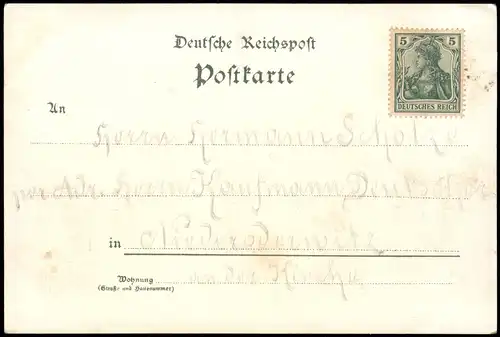 Deutsche Reichspost
Postkarte
5 5
DEUTSCHES REICH
An
Herrn Hermann Scholze
per Adr. Herrn Kaufmann
in Niederoderwitz
an der Kirche
Wohnung
(Straße und Hausnummer)